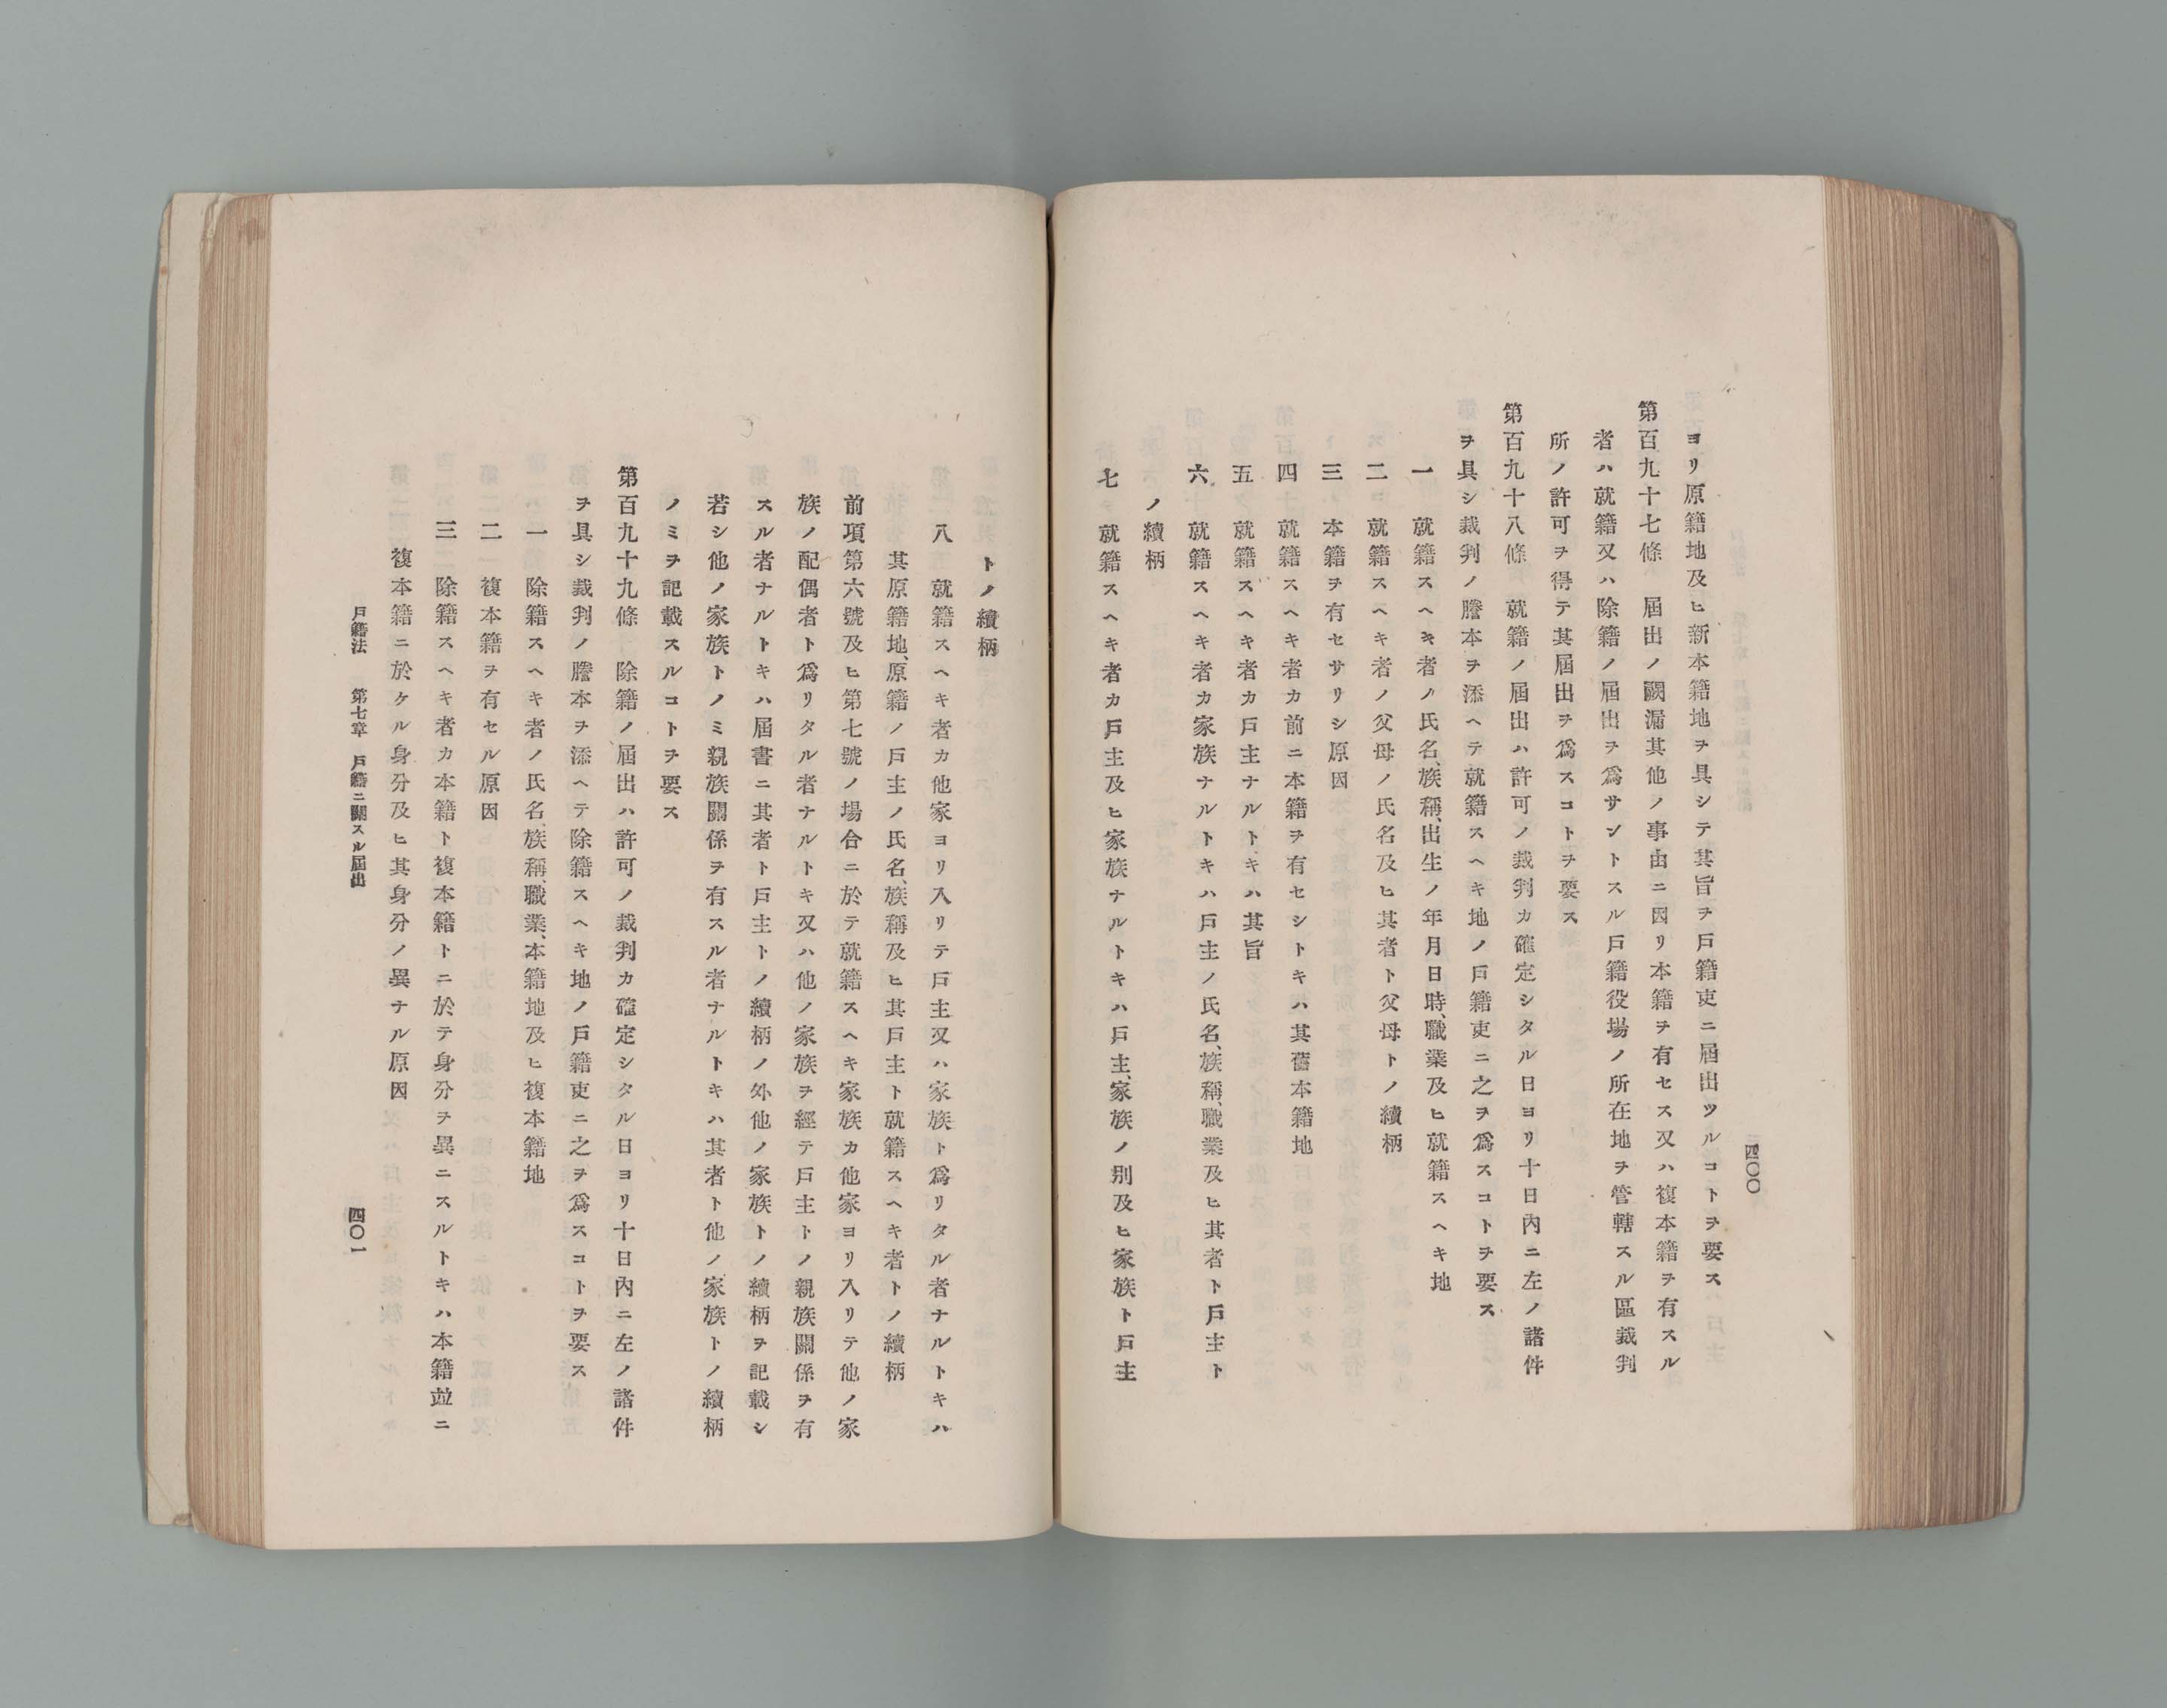 四〇〇
ヨリ原籍地及ヒ新本籍地ヲ具シテ其旨ヲ戶籍吏ニ屆出ツルコトヲ要ス
第百九十七條 屆出ノ闕漏其他ノ事由ニ因リ本籍ヲ有セス又ハ複本籍ヲ有スル
者ハ就籍又ハ除籍ノ屆出ヲ爲サントスル戶籍役場ノ所在地ヲ管轄スル區裁判
所ノ許可ヲ得テ其屆出ヲ爲スコトヲ要ス
第百九十八條 就籍ノ屆出ハ許可ノ裁判カ確定シタル日ヨリ十日內ニ左ノ諸件
ヲ具シ裁判ノ謄本ヲ添ヘテ就籍スヘキ地ノ戶籍吏ニ之ヲ爲スコトヲ要ス
一 就籍スヘキ者ノ氏名、族稱、出生ノ年月日時、職業及ヒ就籍スヘキ地
二 就籍スヘキ者ノ父母ノ氏名及ヒ其者ト父母トノ續柄
三 本籍ヲ有セサリシ原因
四 就籍スヘキ者カ前ニ本籍ヲ有セシトキハ其舊本籍地
五 就籍スヘキ者カ戶主ナルトキハ其旨
六 就籍スヘキ者カ家族ナルトキハ戶主ノ氏名、族稱、職業及ヒ其者ト戶主ト
ノ續柄
七 就籍スヘキ者カ戶主及ヒ家族ナルトキハ戶主、家族ノ別及ヒ家族ト戶主
トノ續柄
八 就籍スヘキ者カ他家ヨリ入リテ戶主又ハ家族ト爲リタル者ナルトキハ
其原籍地、原籍ノ戶主ノ氏名、族稱及ヒ其戶主ト就籍スヘキ者トノ續柄
前項第六號及ヒ第七號ノ場合ニ於テ就籍スヘキ家族カ他家ヨリ入リテ他ノ家
族ノ配偶者ト爲リタル者ナルトキ又ハ他ノ家族ヲ經テ戶主トノ親族關係ヲ有
スル者ナルトキハ屆書ニ其者ト戶主トノ續柄ノ外他ノ家族トノ續柄ヲ記載シ
若シ他ノ家族トノミ親族關係ヲ有スル者ナルトキハ其者ト他ノ家族トノ續柄
ノミヲ記載スルコトヲ要ス
第百九十九條 除籍ノ屆出ハ許可ノ裁判カ確定シタル日ヨリ十日內ニ左ノ諸件
ヲ具シ裁判ノ謄本ヲ添ヘテ除籍スヘキ地ノ戶籍吏ニ之ヲ爲スコトヲ要ス
一 除籍スヘキ者ノ氏名、族稱、職業、本籍地及ヒ複本籍地
二 複本籍ヲ有セル原因
三 除籍スヘキ者カ本籍ト複本籍トニ於テ身分ヲ異ニスルトキハ本籍竝ニ
複本籍ニ於ケル身分及ヒ其身分ノ異ナル原因
戶籍法 第七章 戶籍ニ關スル屆出 四〇一